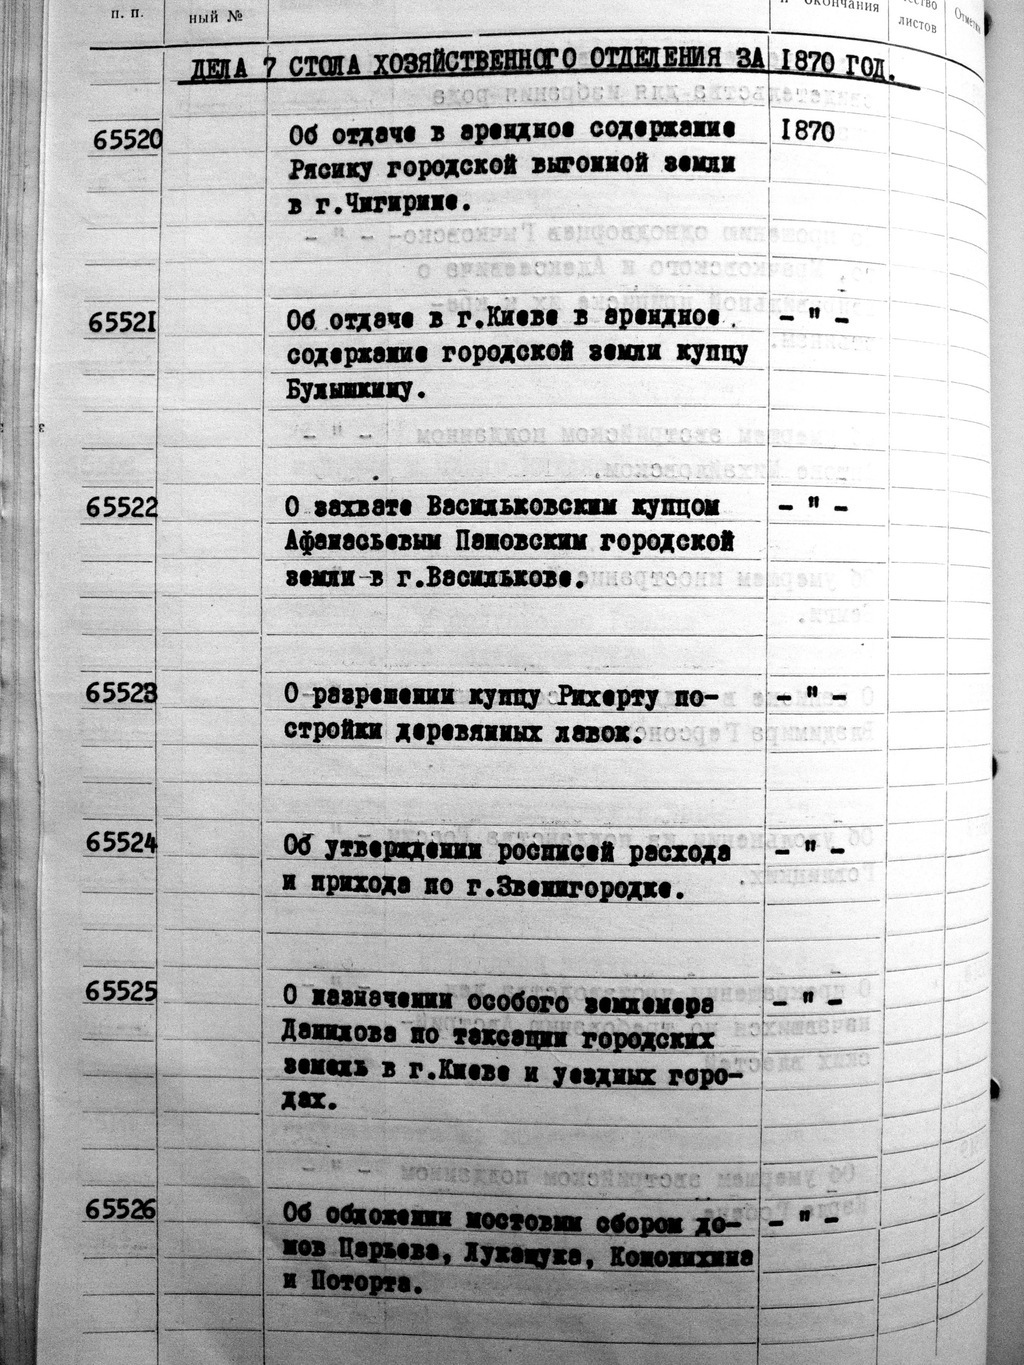 п. п.
ный №
и окончания
листов
ДЕЛА 7 СТОЛА ХОЗЯЙСТВЕННОГО ОТДЕЛЕНИЯ ЗА 1870 ГОД.
65520 Об отдаче в арендное содержание 1870
Рясику городской выгонной земли
в г.Чигирине.
65521 Об отдаче в г.Киеве в арендное - " -
содержание городской земли купцу
Булышкину.
65522 О захвате Васильковским купцом - " -
Афанасьевым Пашовским городской
земли в г.Василькове.
65523 О разрешении купцу Рихерту по- - " -
стройки деревянных лавок.
65524 Об утверждении росписей расхода - " -
и прихода по г.Звенигородке.
65525 О назначении особого землемера - " -
Данилова по таксации городских
земель в г.Киеве и уездных горо-
дах.
65526 Об обложении мостовым сбором до- - " -
мов Царьева, Лукащука, Кононихина
и Поторта.